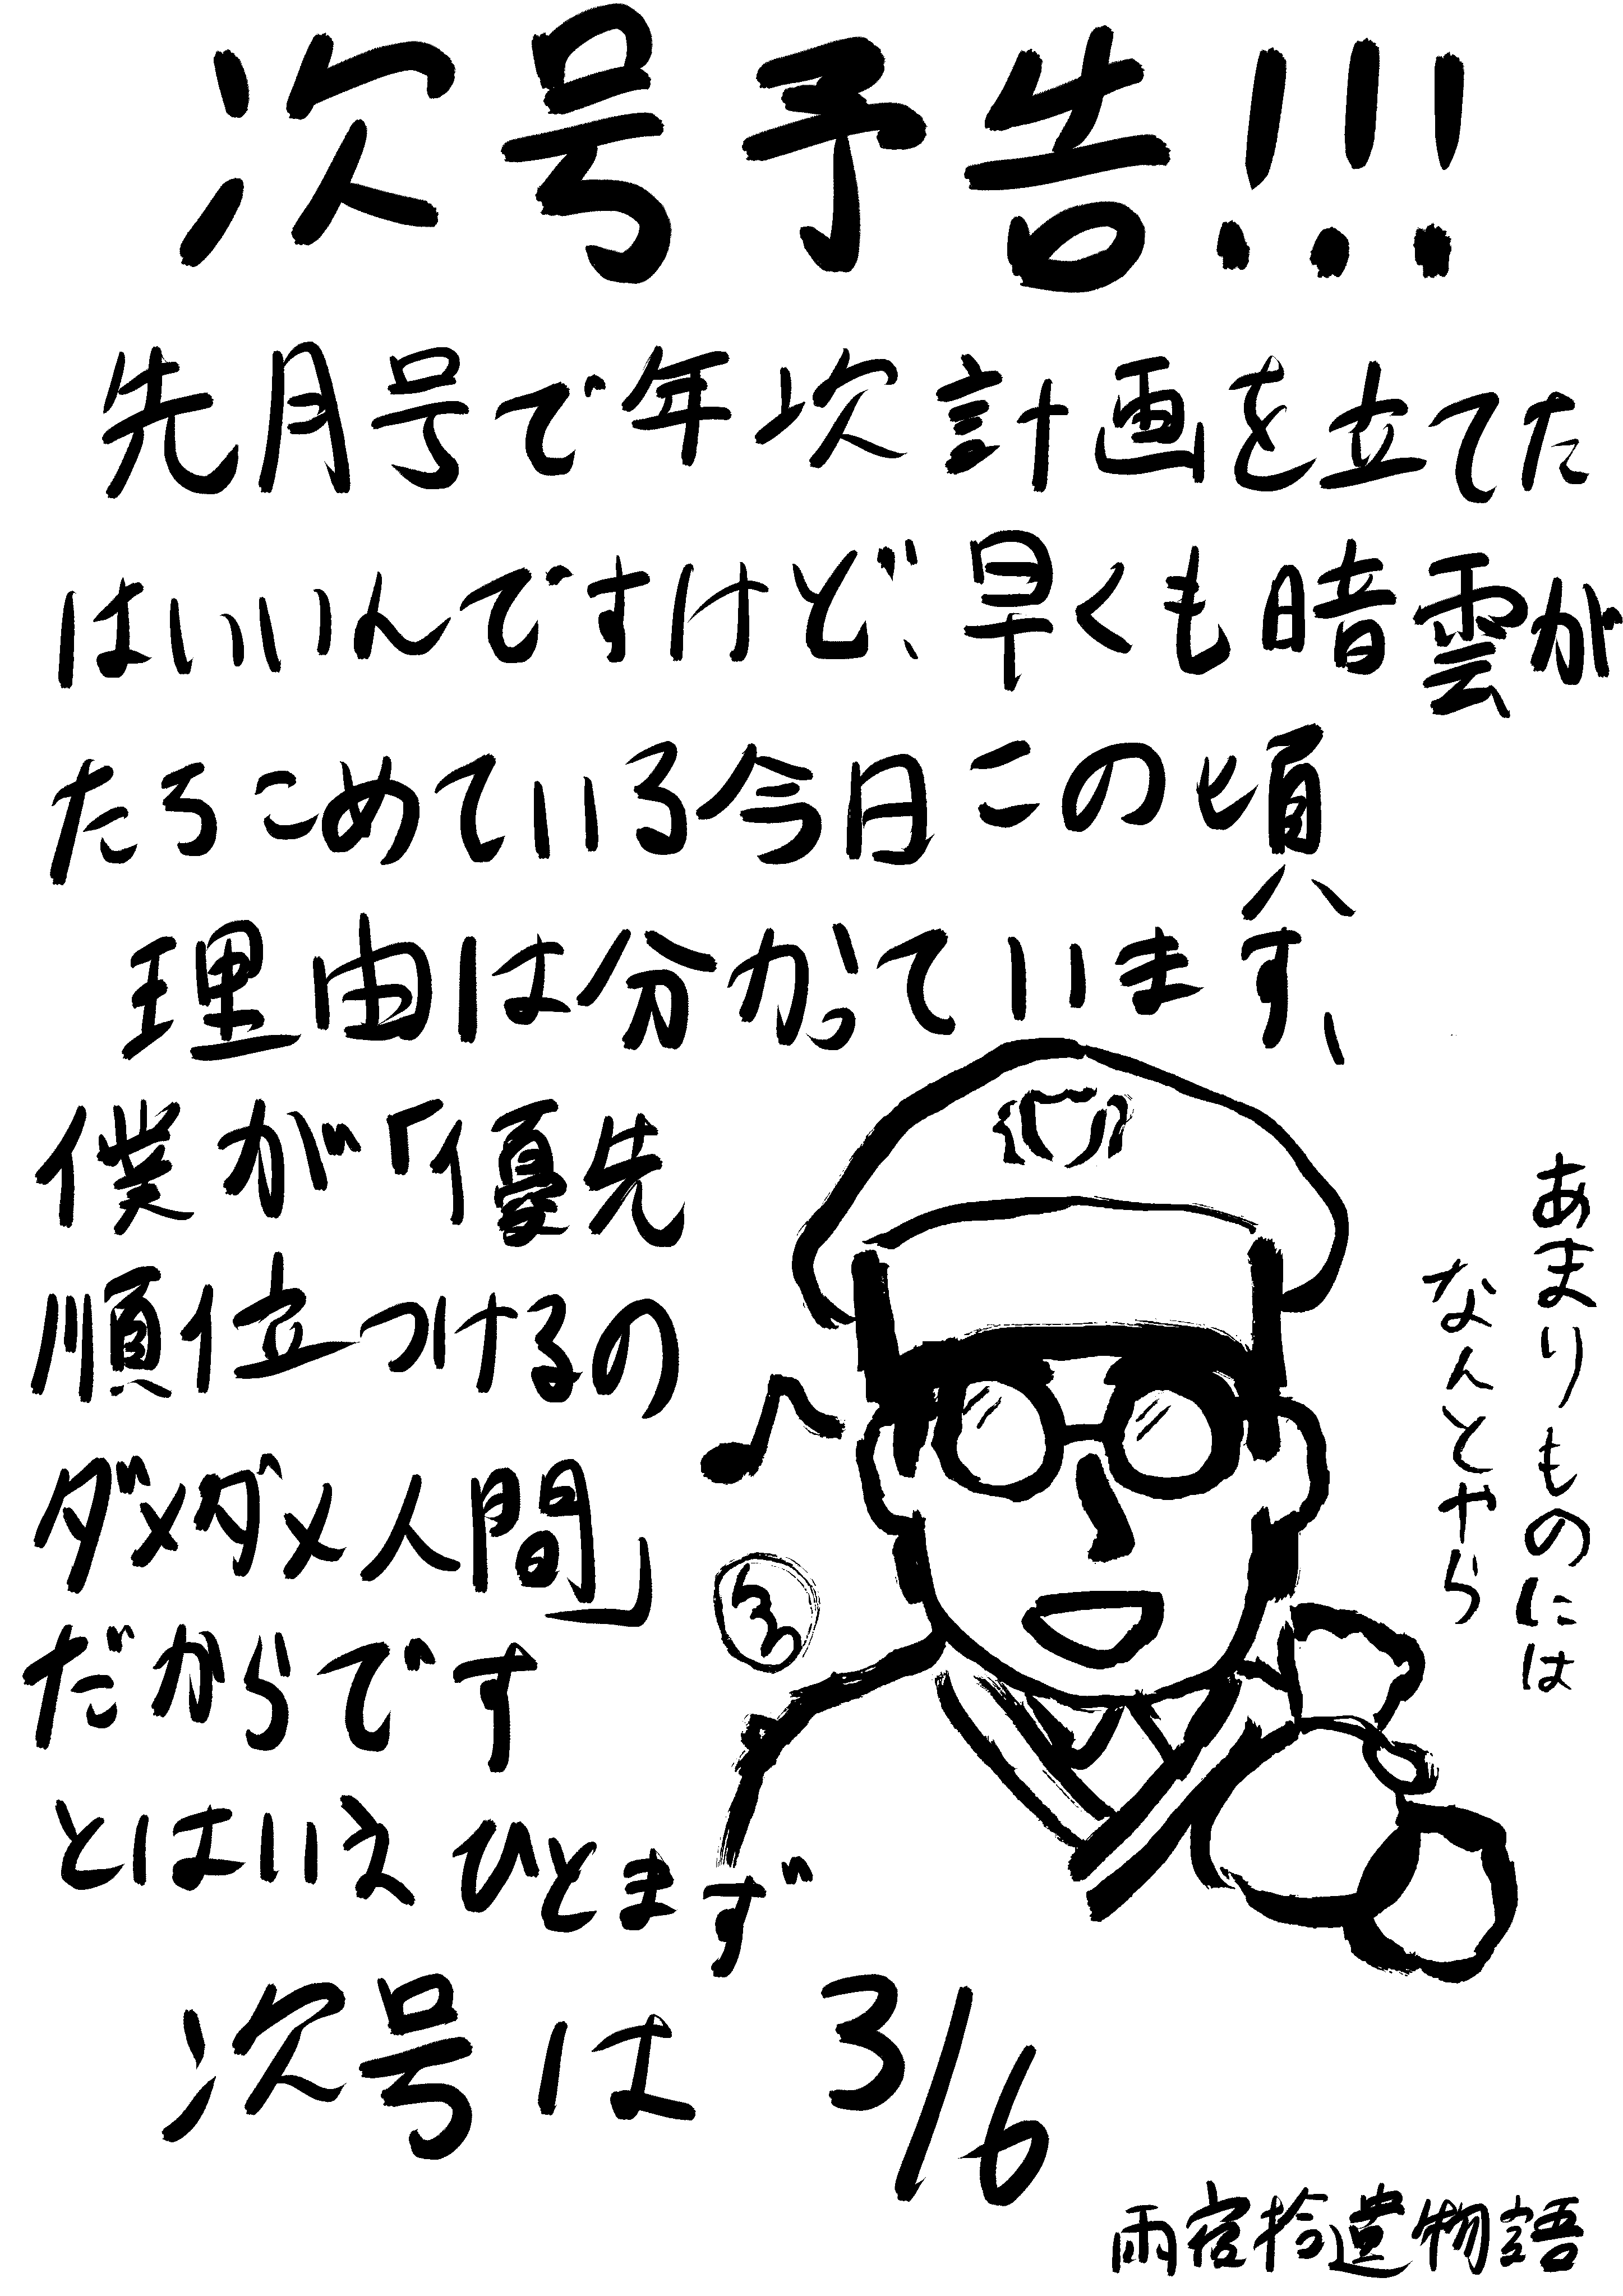 次号予告!!!
先月号で年次計画を立てた
はいいんですけど、早くも暗雲が
たちこめている今日この頃
理由は分かっています、
僕が「優先
順位つけるの
ダメダメ人間」
だからです
とはいえひとまず
次号は 3/6
あまりものには
なんとやら
雨宿拾遺物語